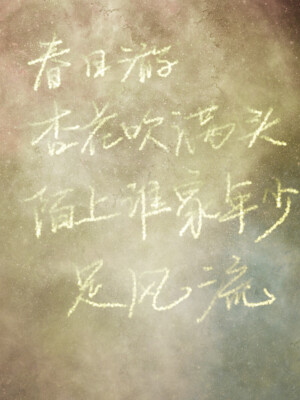 春日游
杏花吹满头
陌上谁家年少
足风流